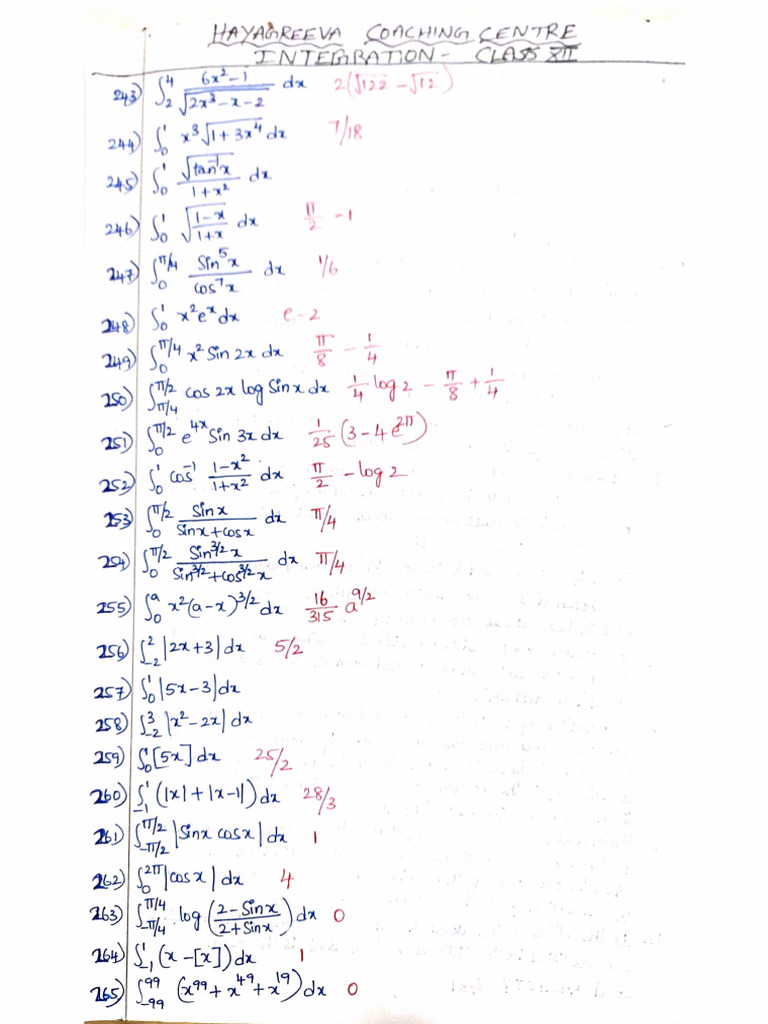 HAYAGREEVA COACHING CENTRE
INTEGRATION - CLASS XII
243) ∫₂⁴ (6x²-1)/√(2x³-x-2) dx 2(√122 - √12)
244) ∫₀¹ x³√(1+3x⁴) dx 7/18
245) ∫₀¹ √(tan⁻¹x)/(1+x²) dx
246) ∫₀¹ √((1-x)/(1+x)) dx π/2 - 1
247) ∫₀^(π/4) sin⁵x/cos⁷x dx 1/6
248) ∫₀¹ x²eˣdx e-2
249) ∫₀^(π/4) x² Sin 2x dx π/8 - 1/4
250) ∫_(π/4)^(π/2) cos 2x log Sin x dx 1/4 log 2 - π/8 + 1/4
251) ∫₀^(π/2) e^(4x) Sin 3x dx 1/25 (3-4e^(2π))
252) ∫₀¹ cos⁻¹ (1-x²)/(1+x²) dx π/2 - log 2
253) ∫₀^(π/2) Sinx/(Sinx+cosx) dx π/4
254) ∫₀^(π/2) Sin^(3/2)x/(Sin^(3/2)+cos^(3/2)x) dx π/4
255) ∫₀^a x²(a-x)^(3/2) dx 16/315 a^(9/2)
256) ∫₋₂² |2x+3| dx 5/2
257) ∫₀¹ |5x-3|dx
258) ∫₋₂³ |x²-2x| dx
259) ∫₀¹ [5x] dx 25/2
260) ∫₋₁¹ (|x|+|x-1|)dx 28/3
261) ∫_(-π/2)^(π/2) |Sinx cosx| dx 1
262) ∫₀^(2π) |cosx| dx 4
263) ∫_(-π/4)^(π/4) log ((2-Sinx)/(2+Sinx)) dx 0
264) ∫₋₁¹ (x-[x])dx 1
265) ∫₋₉₉⁹⁹ (x⁹⁹+x⁴⁹+x¹⁹)dx 0